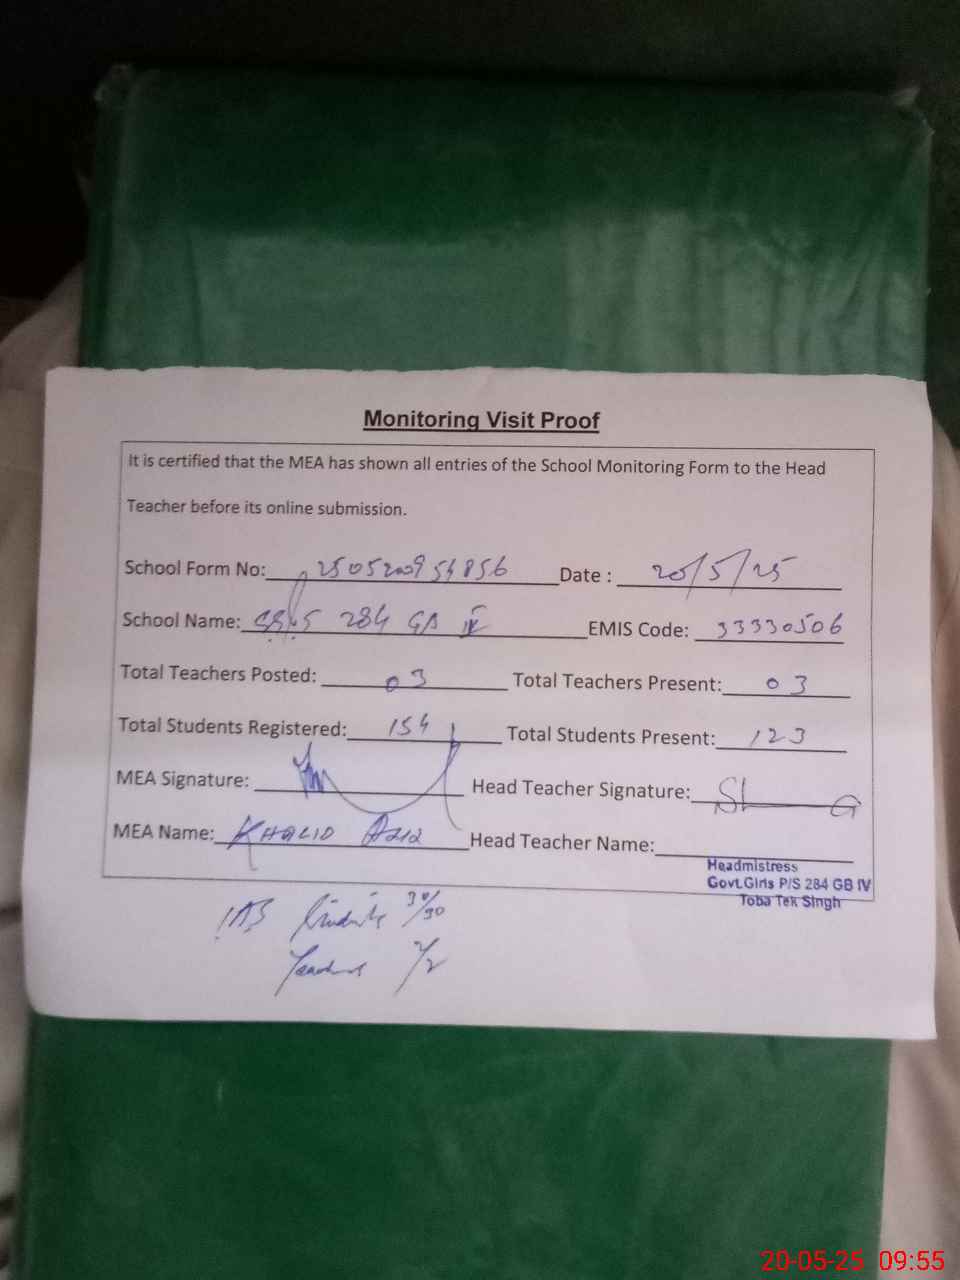 Monitoring Visit Proof
It is certified that the MEA has shown all entries of the School Monitoring Form to the Head
Teacher before its online submission.
School Form No: 2505200954856 Date : 20/5/25
School Name: 284 GB IV EMIS Code: 33330506
Total Teachers Posted: 03 Total Teachers Present: 03
Total Students Registered: 154 Total Students Present: 123
MEA Signature: Head Teacher Signature:
MEA Name: KHALID Aziz Head Teacher Name:
Headmistress
Govt.Girls P/S 284 GB IV
Toba Tek Singh
Students 30/30
Teachers 2/2
20-05-25 09:55